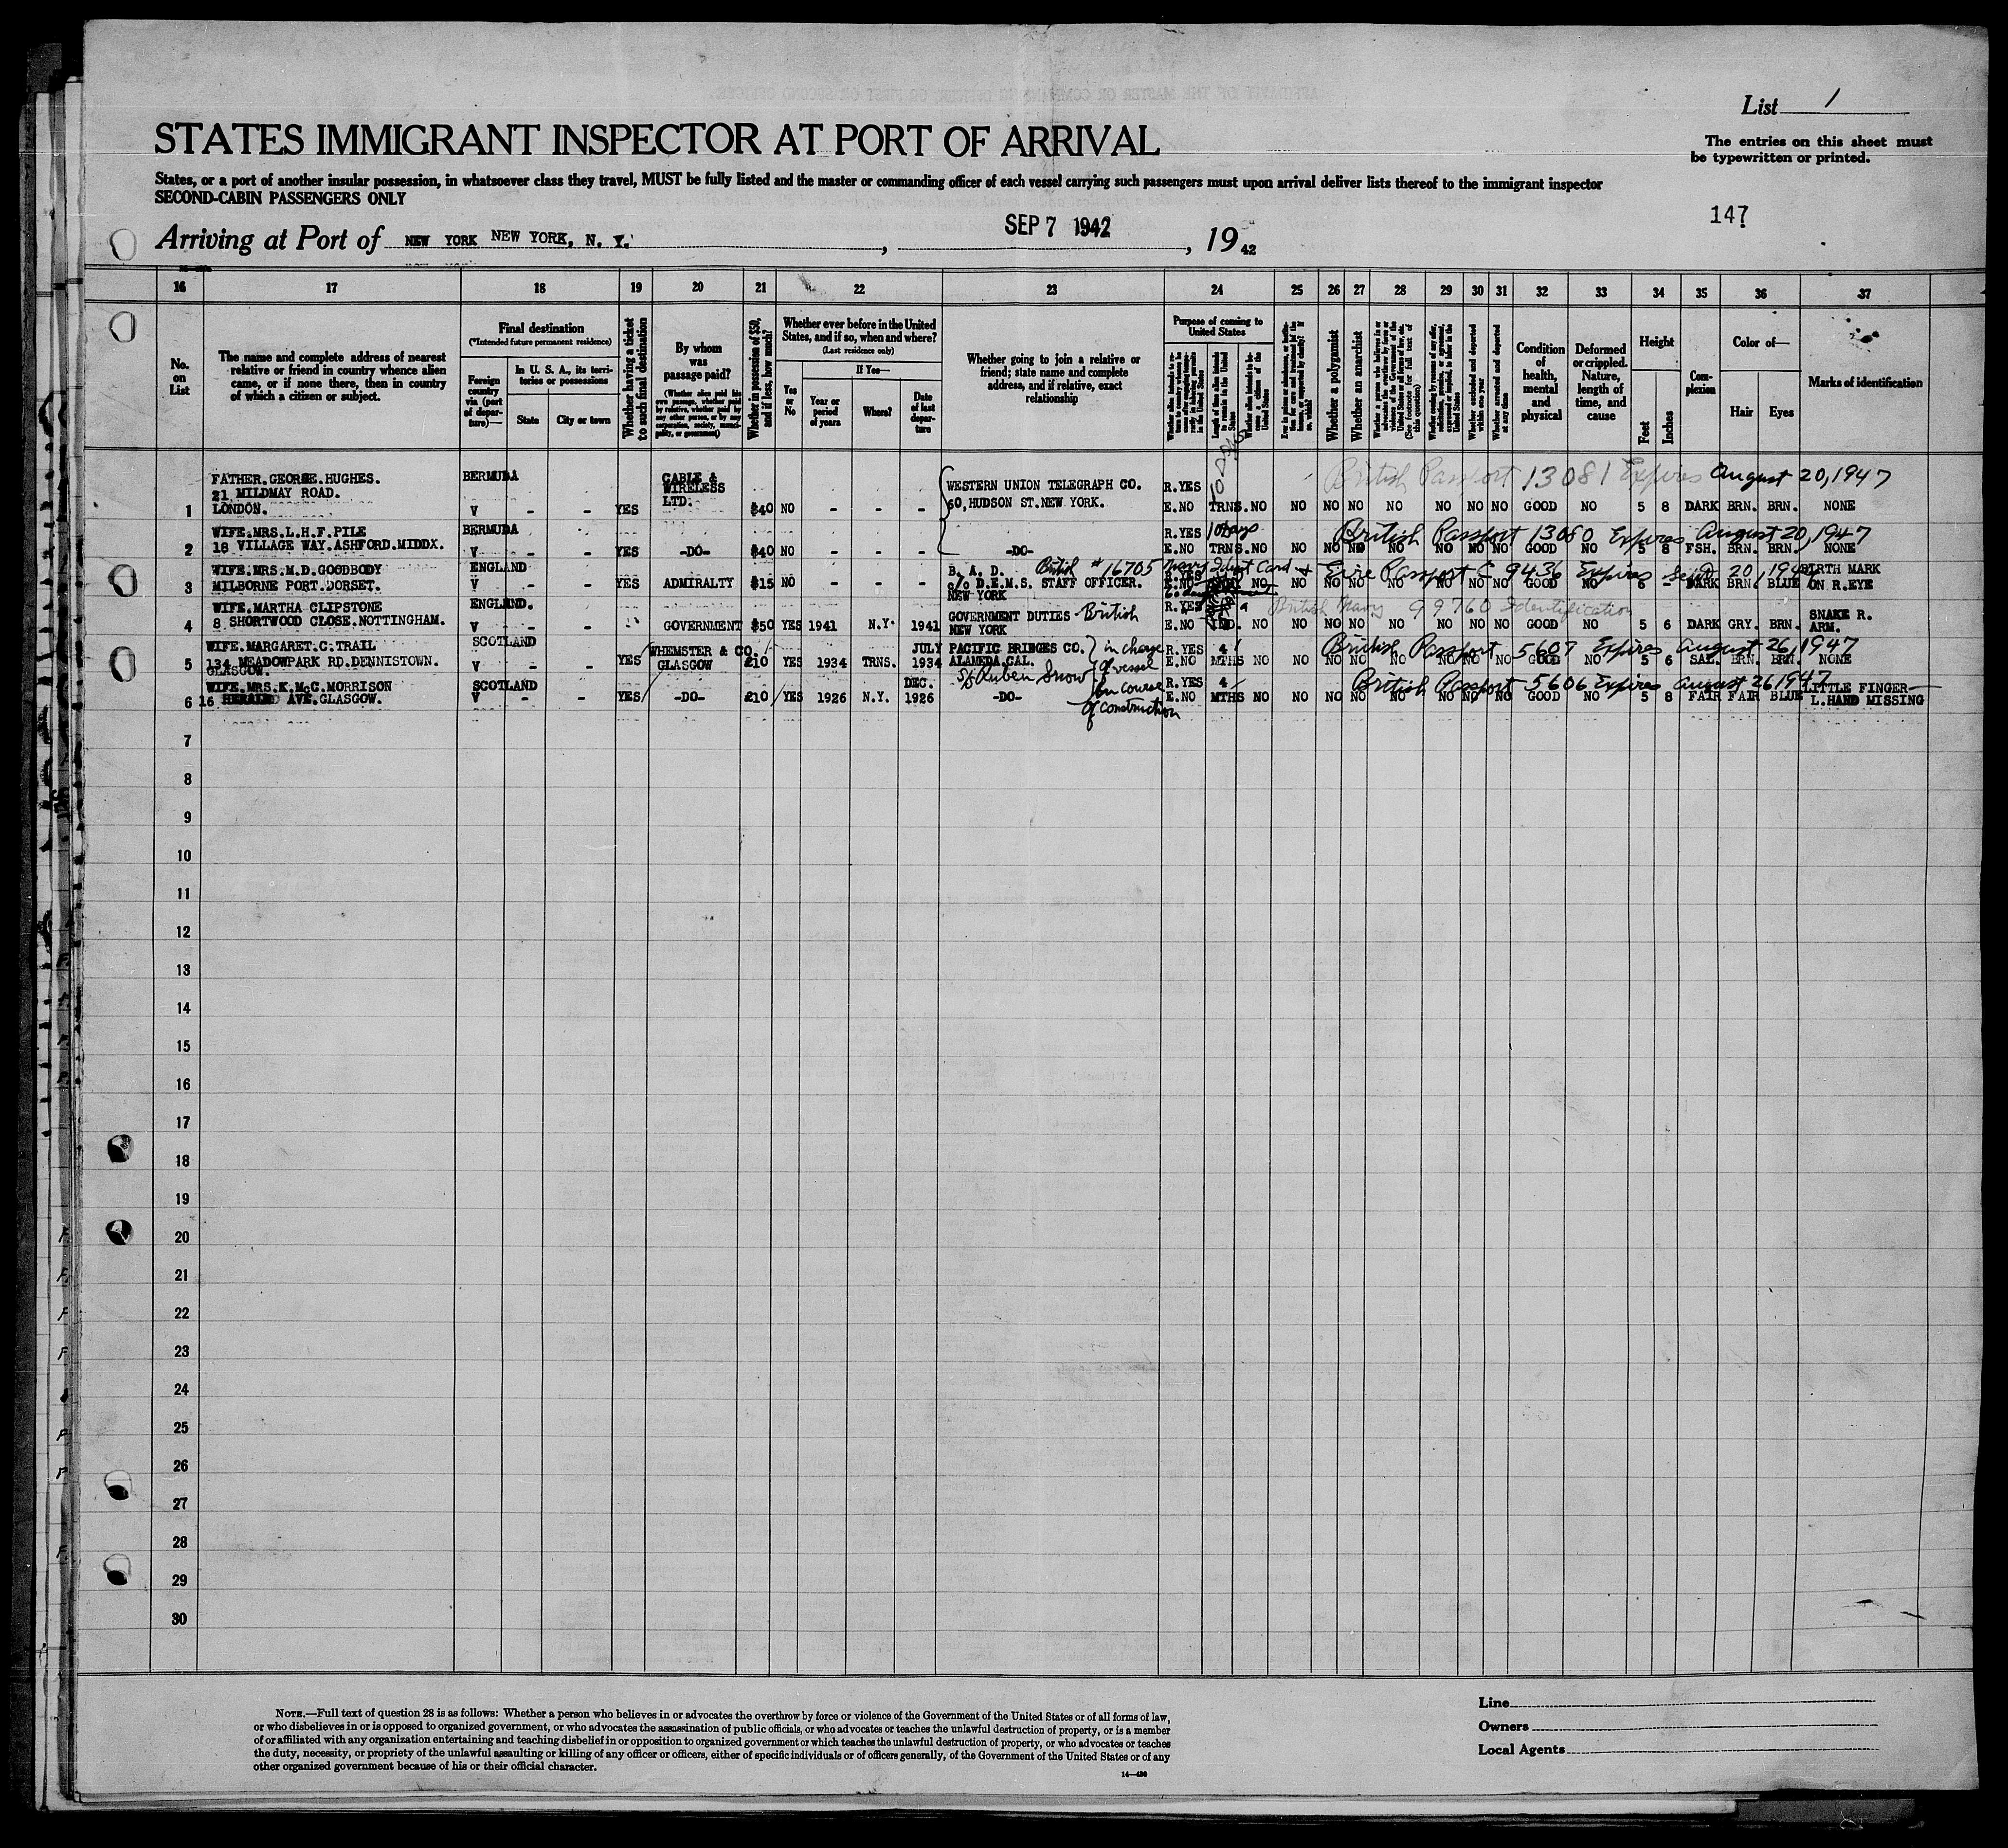 List 1
STATES IMMIGRANT INSPECTOR AT PORT OF ARRIVAL
The entries on this sheet must
be typewritten or printed.
States, or a port of another insular possession, in whatsoever class they travel, MUST be fully listed and the master or commanding officer of each vessel carrying such passengers must upon arrival deliver lists thereof to the immigrant inspector
SECOND-CABIN PASSENGERS ONLY
147
Arriving at Port of NEW YORK NEW YORK, N. Y. , SEP 7 1942 , 19 42
16 17 18 19 20 21 22 23 24 25 26 27 28 29 30 31 32 33 34 35 36 37
No. on List
The name and complete address of nearest
relative or friend in country whence alien
came, or if none there, then in country
of which a citizen or subject.
Final destination
(*Intended future permanent residence)
Foreign country via (port of departure)—
In U. S. A., its territories or possessions
State
City or town
Whether having a ticket to such final destination
By whom was passage paid?
(Whether alien paid his own passage, whether paid by relative, whether paid by any other person, or by any corporation, society, municipality, or government)
Whether in possession of $50, and if less, how much?
Whether ever before in the United
States, and if so, when and where?
(Last residence only)
Yes or No
If Yes—
Year or period of years
Where?
Date of last departure
Whether going to join a relative or
friend; state name and complete
address, and if relative, exact
relationship
Purpose of coming to
United States
Length of time alien intends to remain in the United States
Whether alien intends to become a citizen of the United States
Whether a polygamist
Whether an anarchist
(See footnote for full text of this question)
Whether excluded and deported within one year
Whether arrested and deported at any time
Condition of health, mental and physical
Deformed or crippled. Nature, length of time, and cause
Height
Feet
Inches
Complexion
Color of—
Hair
Eyes
Marks of identification
FATHER.GEORGE.HUGHES. BERMUDA CABLE & WESTERN UNION TELEGRAPH CO. R.YES British Passport 13081 Expires August 20, 1947
21 MILDMAY ROAD. WIRELESS 60,HUDSON ST.NEW YORK.
1 LONDON. V - - YES LTD. $40 NO - - - E.NO TRNS. NO NO NO NO NO NO NO NO GOOD NO 5 8 DARK BRN. BRN. NONE
WIFE.MRS.L.H.F.PILE BERMUDA R.YES 10 days British Passport 13080 Expires August 20, 1947
2 18 VILLAGE WAY.ASHFORD.MIDDX. V - - YES -DO- $40 NO - - - -DO- E.NO TRNS. NO NO NO NO NO NO NO NO GOOD NO 5 8 FSH. BRN. BRN. NONE
WIFE.MRS.M.D.GOODBODY ENGLAND B. A. D. British #16705 Navy Ident Card + Eire Passport C 9436 Expires Sept 20, BIRTH MARK
3 MILBORNE PORT.DORSET. V - - YES ADMIRALTY $15 NO - - - c/o D.E.M.S. STAFF OFFICER. E.NO NO NO NO NO NO NO NO NO GOOD NO 6 - DARK BRN BLUE ON R.EYE
NEW YORK
WIFE.MARTHA CLIPSTONE ENGLAND. GOVERNMENT DUTIES British R.YES British Navy 99760 Identification SNAKE R.
4 8 SHORTWOOD CLOSE.NOTTINGHAM. V - - GOVERNMENT $50 YES 1941 N.Y. 1941 NEW YORK E.NO NO NO NO NO NO NO NO NO GOOD NO 5 6 DARK GRY. BRN. ARM.
WIFE.MARGARET.C.TRAIL SCOTLAND WHEMSTER & CO. JULY PACIFIC BRIDGES CO. in charge R.YES 4 British Passport 5607 Expires August 26, 1947
5 134 MEADOWPARK RD.DENNISTOWN. V - - YES GLASGOW £10 YES 1934 TRNS. 1934 ALAMEDA,CAL. of vessel E.NO MTHS NO NO NO NO NO NO NO NO GOOD NO 5 6 SAL. BRN. BRN. NONE
GLASGOW. S/S Ruben Snow
WIFE.MRS.K.McC.MORRISON SCOTLAND DEC. in course R.YES 4 British Passport 5606 Expires August 26 1947 LITTLE FINGER
6 16 AVE.GLASGOW. V - - YES -DO- £10 YES 1926 N.Y. 1926 -DO- of construction E.NO MTHS NO NO NO NO NO NO NO NO GOOD NO 5 8 FAIR FAIR BLUE L.HAND MISSING
7
8
9
10
11
12
13
14
15
16
17
18
19
20
21
22
23
24
25
26
27
28
29
30
NOTE.—Full text of question 28 is as follows: Whether a person who believes in or advocates the overthrow by force or violence of the Government of the United States or of all forms of law,
or who disbelieves in or is opposed to organized government, or who advocates the assassination of public officials, or who advocates or teaches the unlawful destruction of property, or is a member
of or affiliated with any organization entertaining and teaching disbelief in or opposition to organized government or which teaches the unlawful destruction of property, or who advocates or teaches
the duty, necessity, or propriety of the unlawful assaulting or killing of any officer or officers, either of specific individuals or of officers generally, of the Government of the United States or of any
other organized government because of his or their official character.
14—480
Line
Owners
Local Agents